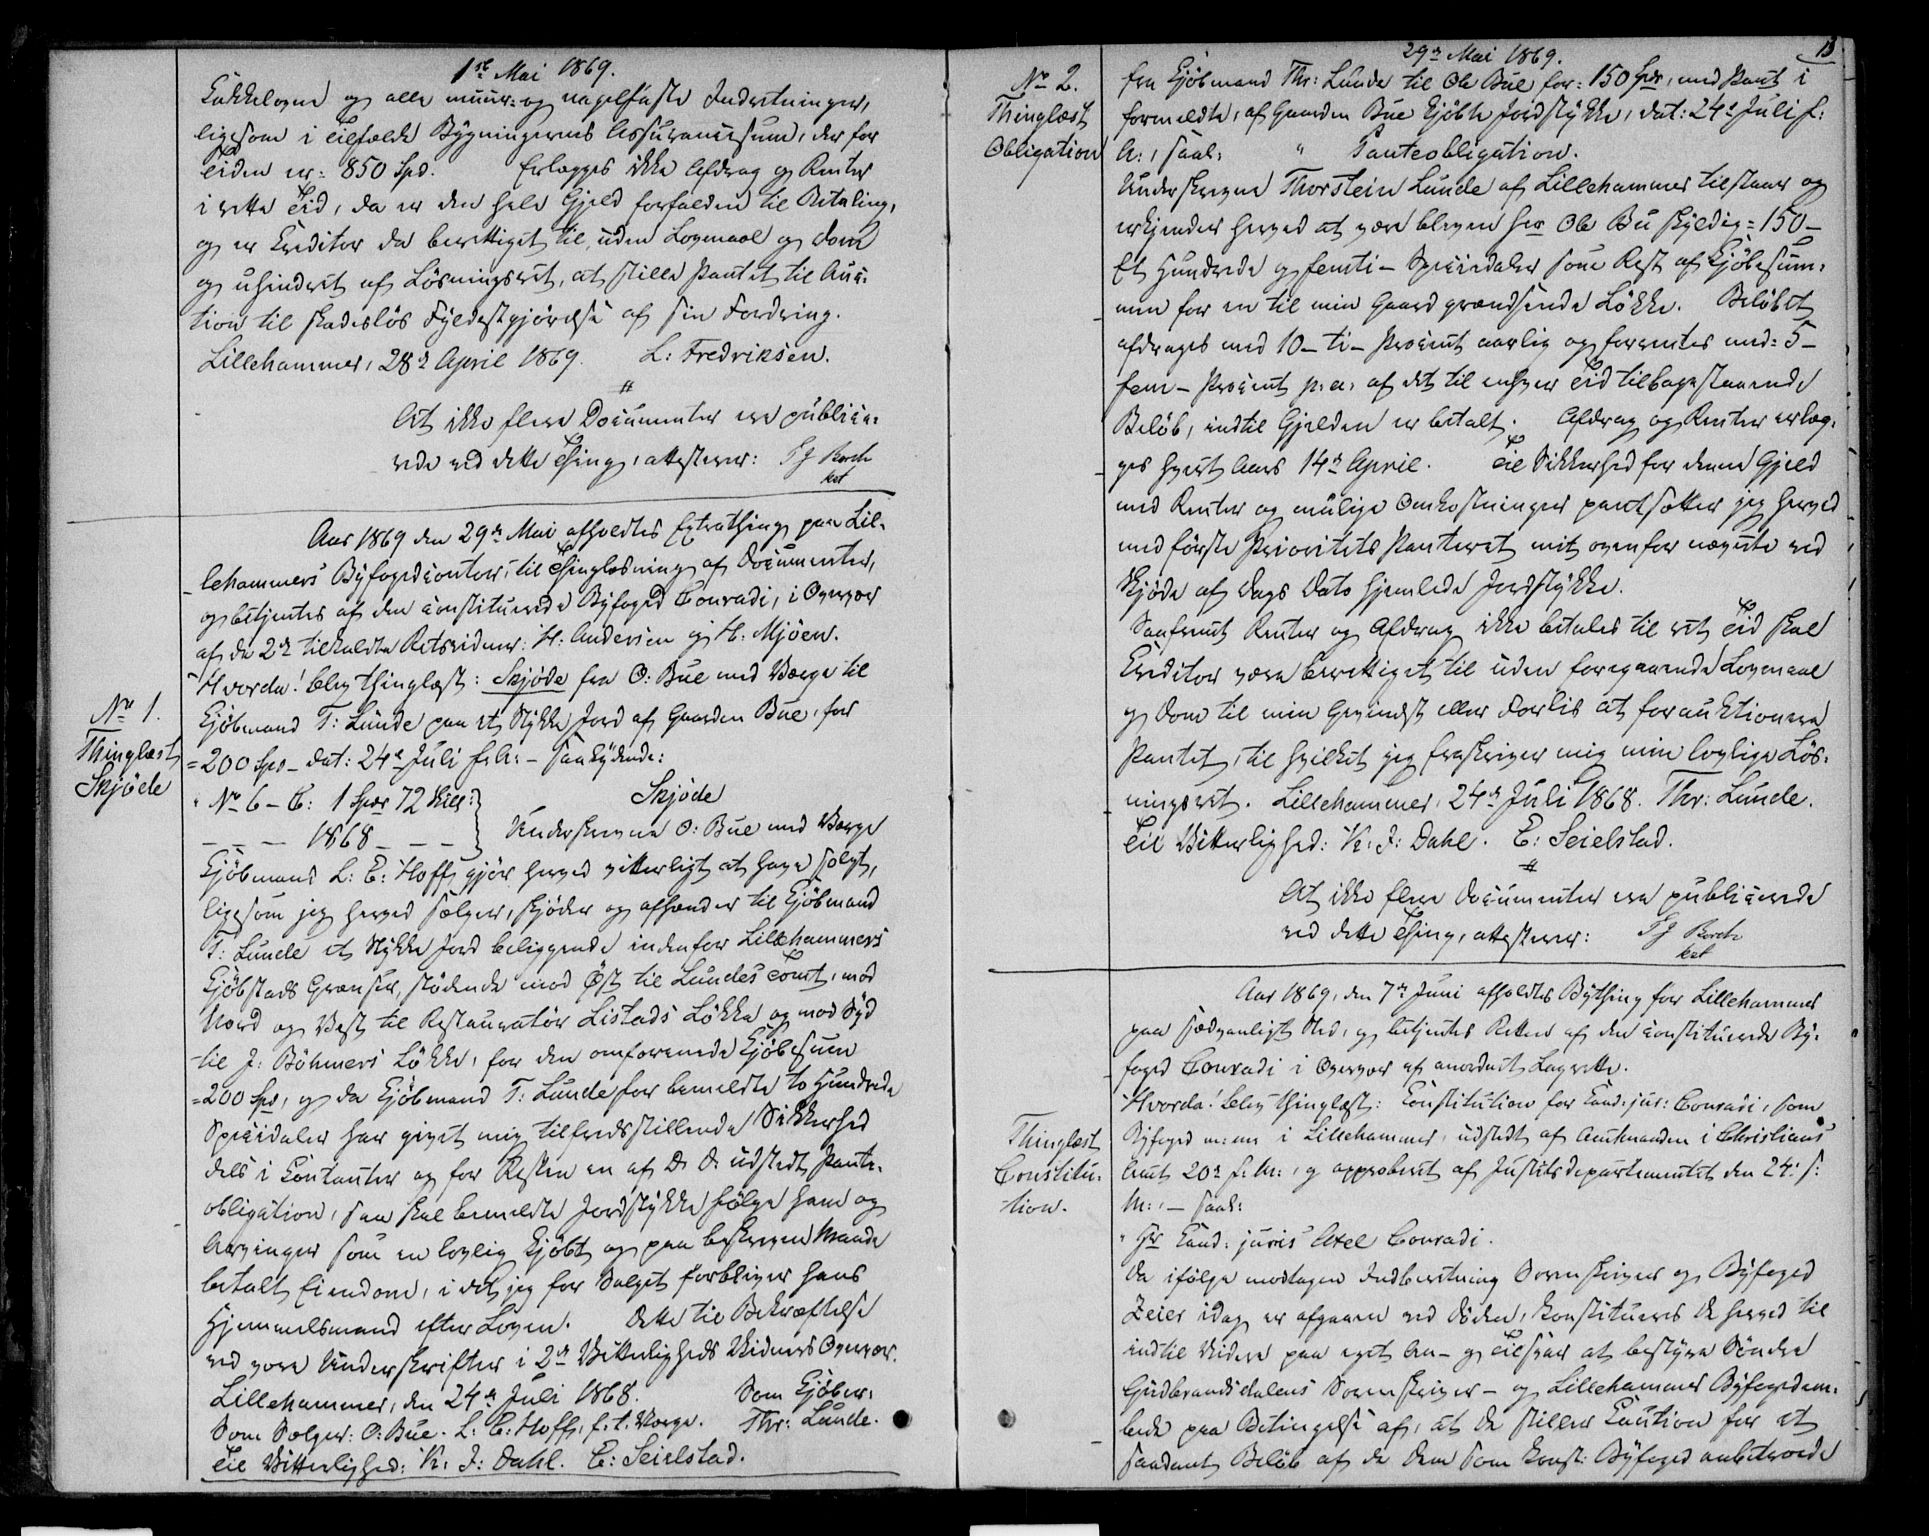 1ste Mai 1869.
Kakkelovne og alle muur- og nagelfaste Indretninger,
ligesom i Tilfælde Bygningernes Assurancesum, der for
Tiden er: 850 Spd. Erlægges ikke Afdrag og Renter
i rette Tid, da er den hele Gjeld forfalden til Betaling,
og er Creditor da berettiget til, uden Lovmaal og Dom
og uhindret af Løsningsret, at stille Pantet til Auc-
tion til skadesløs Fyldestgjørelse af sin Fordring.
Lillehammer, 28de April 1869. L: Fredriksen.
#
At ikke flere Documenter ere publice-
rede ved dette Thing, attesterer:
Aar 1869 den 29de Mai afholdtes Extrathing paa Lil-
lehammers Byfogedcontor, til Thinglæsning af Documenter,
og betjentes af den constituerede Byfoged Conradi, i Overvær
af de 2de tilkaldte Retsvidner: H: Andersen og H: Mjöen.
Hvorda! blev thinglæst: Skjöde fra O: Bue med Værge til
No 1.
Thinglæst
Skjöde
Kjöbmand T: Lunde paa et Stykke Jord af Gaarden Bue, for
=200 Spd - dat: 24de Juli f. A: - saalydende:
" No 6 - C: 1 Spd 72 Skill: }
Skjöde
- - - 1868 - - -
Underskrevne O: Bue med Værge
Kjöbmand L: C: Hoff, gjör herved vitterligt at have solgt,
ligesom jeg herved sælger, skjöder og afhænder til Kjöbmand
T: Lunde et Stykke Jord beliggende indenfor Lillehammers
Kjöbstads Grændser, stödende mod Öst til Lundes Tomt, mod
Nord og Vest til Restauratör Listads Lökke og mod Syd
til J: Böhmers Lökke, for den omforenede Kjöbesum
=200 Spd, og da Kjöbmand T: Lunde for bemeldte to Hundrede
Speciedaler har givet mig tilfredsstillende Sikkerhed
dels i Contanter og for Resten en af D. D. udstedt Pante-
obligation, saa skal bemeldte Jordstykke fölge ham og
Arvinger som en lovlig kjöbt og paa beskreven Maade
betalt Eiendom, i det jeg for Salget forbliver hans
Hjemmelsmand efter Loven. Dette til Bekræftelse
ved vore Underskrifter i 2de Vitterligheds Vidners Overvær.
Lillehammer, den 24de Juli 1868. Som Kjöber:
Som Sælger: O: Bue. L: C: Hoff, f. t. Værge. Thr: Lunde.
Til Vitterlighed: K: J: Dahl. E: Seielstad.
29de Mai 1869.
13
No 2.
Thinglæst
Obligation
fra Kjöbmand Thr: Lunde til Ole Bue for: 150 Spd, med Pant i
formeldte, af Gaarden Bue kjöbte Jordstykke, dat: 24de Juli f:
A:, saal: " Panteobligation.
Underskrevne Thorstein Lunde af Lillehammer tilstaar og
erkjender herved at være bleven Hr Ole Bu skyldig =150-
Et Hundrede og femti - Speciedaler som Rest af Kjöbesum-
men for en til min Gaard grændsende Lökke. Belöbet
afdrages med 10 - ti - Procent aarlig og forrentes med: 5-
fem - Procent p: a: af det til enhver Tid tilbagestaaende
Belöb, indtil Gjelden er betalt. Afdrag og Renter erlæg-
ges hvert Aars 14de April. Til Sikkerhed for denne Gjeld
med Renter og mulige Omkostninger pantsætter jeg herved
med förste Prioritets Panteret mit ovenfor nævnte ved
Skjöde af Dags Dato hjemlede Jordstykke.
Saafremt Renter og Afdrag ikke betales til ret Tid skal
Creditor være berettiget til uden foregaaende Lovmaal
og Dom til min Gevindst eller Forlis at forauktionere
Pantet, til hvilket jeg fraskriver mig min lovlige Lös-
ningsret. Lillehammer, 24de Juli 1868. Thr: Lunde.
Til Vitterlighed: K: J: Dahl. E: Seielstad.
#
At ikke flere Documenter ere publicerede
ved dette Thing, attesterer:
Aar 1869, den 7de Juni afholdtes Bything for Lillehammer
paa sædvanligt Sted, og betjentes Retten af den constituerede By-
foged Conradi i Overvær af anordnet Lagrette.
Hvorda! blev thinglæst: Constitution for Cand: jur: Conradi, som
Thinglæst
Constitu-
tion.
Byfoged m: m: i Lillehammer, udstedt af Amtmanden i Christians
Amt 20de f. M:, og approberet af Justitsdepartementet den 24: s:
M:, - saal:
" Hr Cand: juris Axel Conradi.
Da ifölge modtagen Indberetning Sorenskriver og Byfoged
Zeier idag er afgaaen ved Döden, konstitueres De herved til
indtil Videre paa eget An- og Tilsvar at bestyre Söndre
Gudbrandsdalens Sorenskriver- og Lillehammer Byfogedem-
bede paa Betingelse af, at De stiller Caution for et
saadant Belöb af de Dem som konst: Byfoged anbetroede